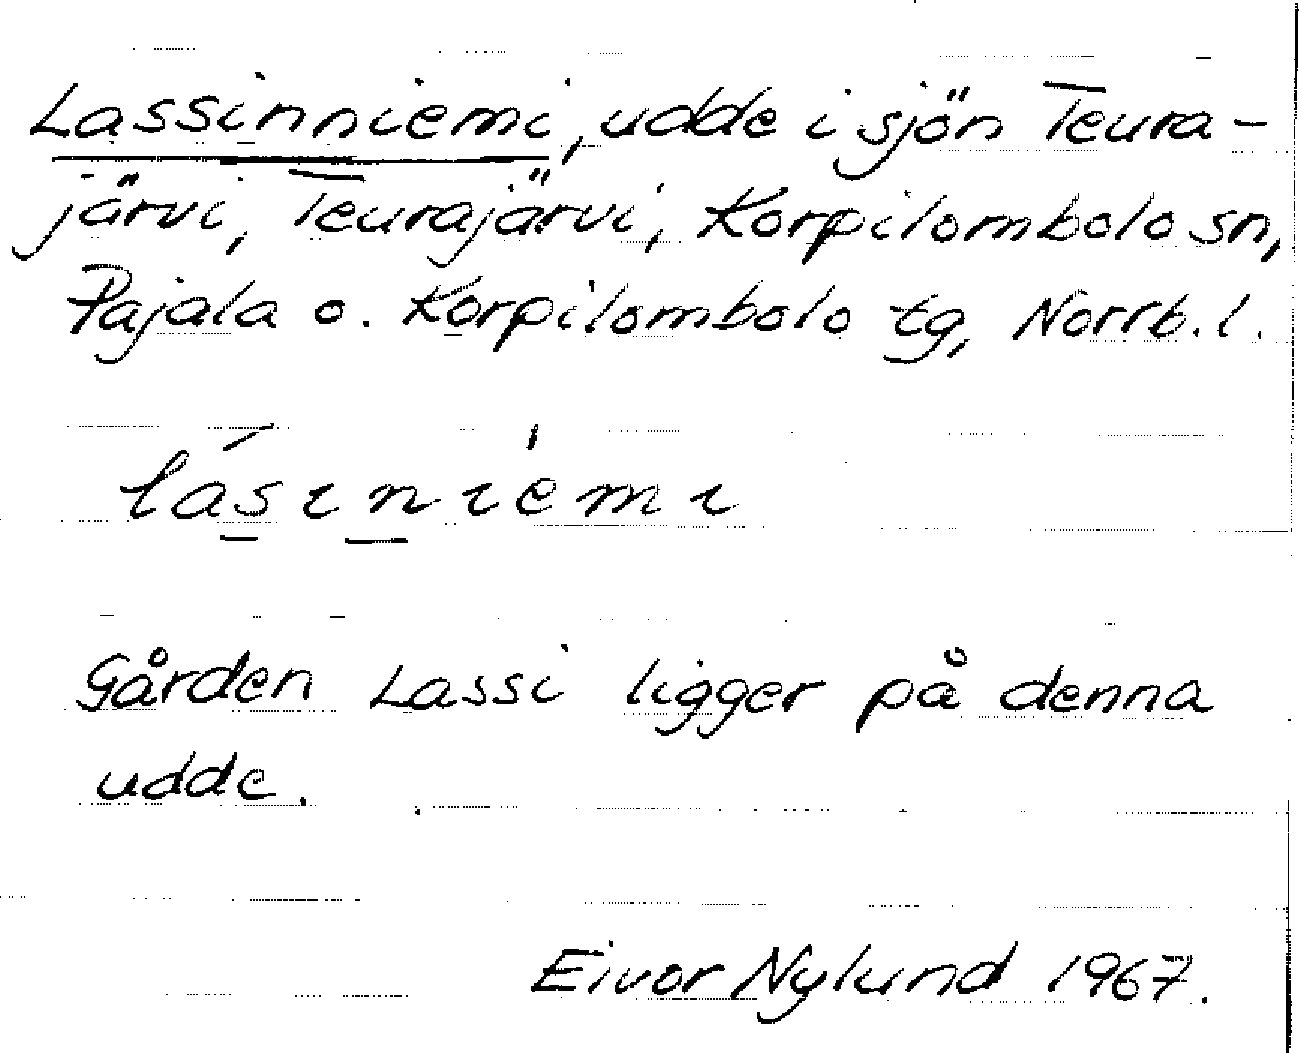 Lassinniemi, udde i sjön Teura-
järvi, Teurajärvi, Korpilombolo sn,
Pajala o. Korpilombolo tg, Norrb. l.
lásınıèmı
Gården Lassi ligger på denna
udde.
Eivor Nylund 1967.